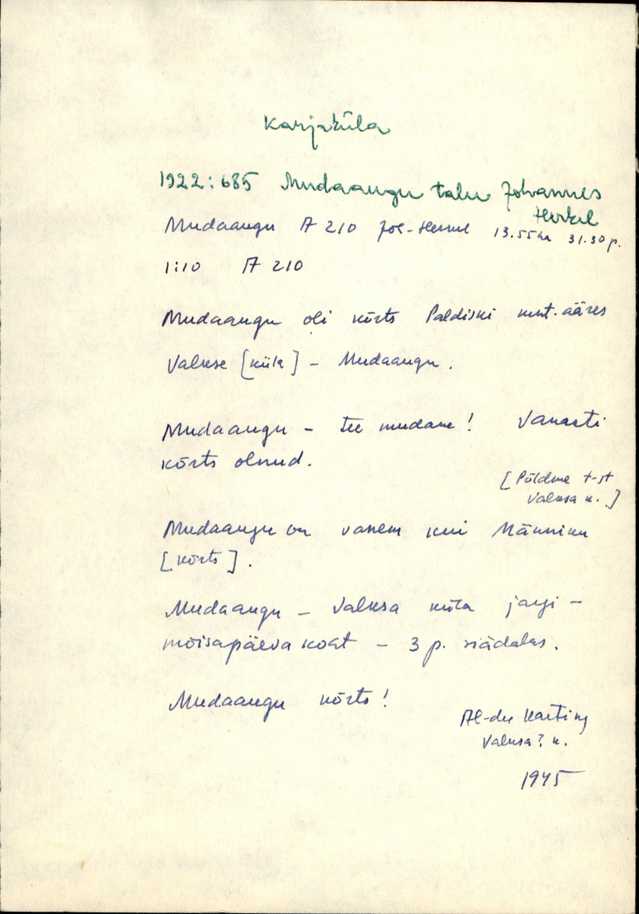 Karjaküla
1922:685 Mudaaugu talu Johannes
Herkel
Mudaaugu A 210 Joh-Herkel 13.55ha 31.30 p.
1:10 A 210
Mudaaugu oli kõrts Paldiski mnt. ääres
Valkse [küla] - Mudaaugu.
Mudaaugu - tee mudane! Vanasti
kõrts olnud.
[Põldme t-st
Valksa k.]
Mudaaugu on vanem kui Männiku
[kõrts].
Mudaaugu - Valksa küla järgi -
mõisapäeva koht - 3 p. nädalas.
Mudaaugu kõrts!
Valksa? k.
1945